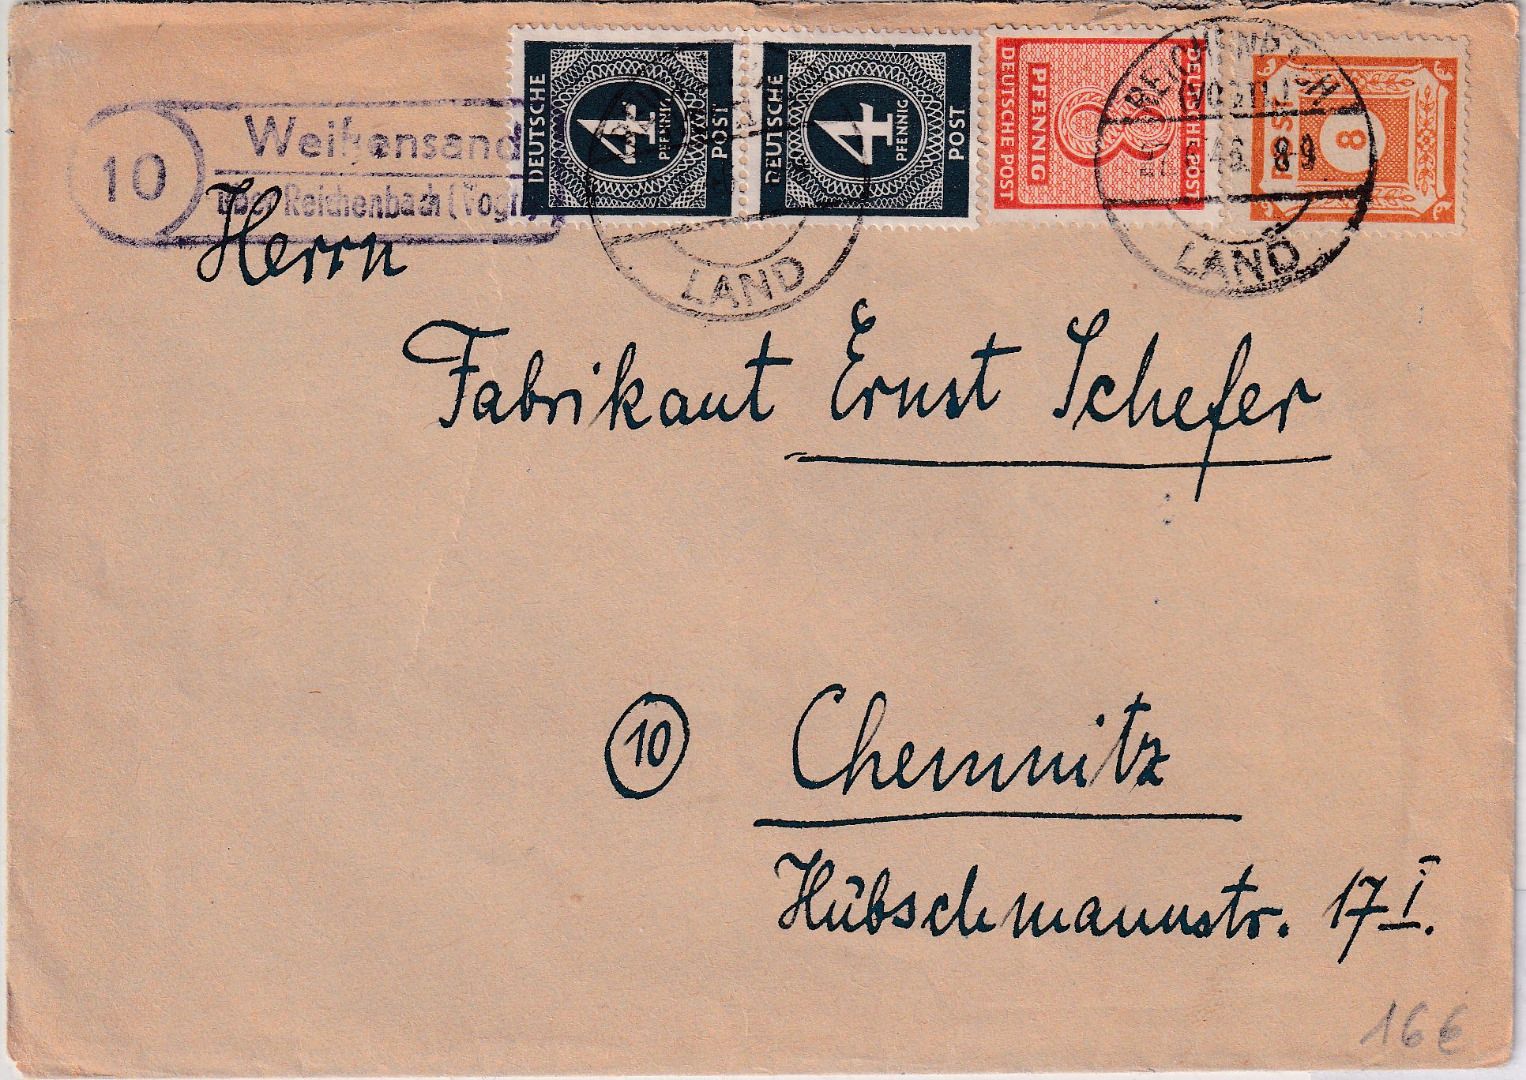 10
Weißensand
über Reichenbach (Vogtl.)
DEUTSCHE POST
4
PFENNIG
DEUTSCHE POST
4
PFENNIG
DEUTSCHE POST
PFENNIG
8
POST
8
LAND
REICHENBACH
(VOGTL.)
46 8-9
LAND
Herrn
Fabrikant Ernst Schefer
10 Chemnitz
Hübschmannstr. 17 I.
16€